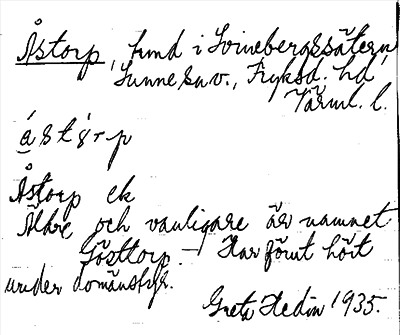 Åstorp, hmd i Svinebergssätern,
Sunne sn v., Fryksd. hd,
Värml. l.
å s t ó r p
Åstorp ek
Äldre och vanligare är namnet
Gösttorp. – Har förut hört
under domänstyr.
Greta Hedin 1935.